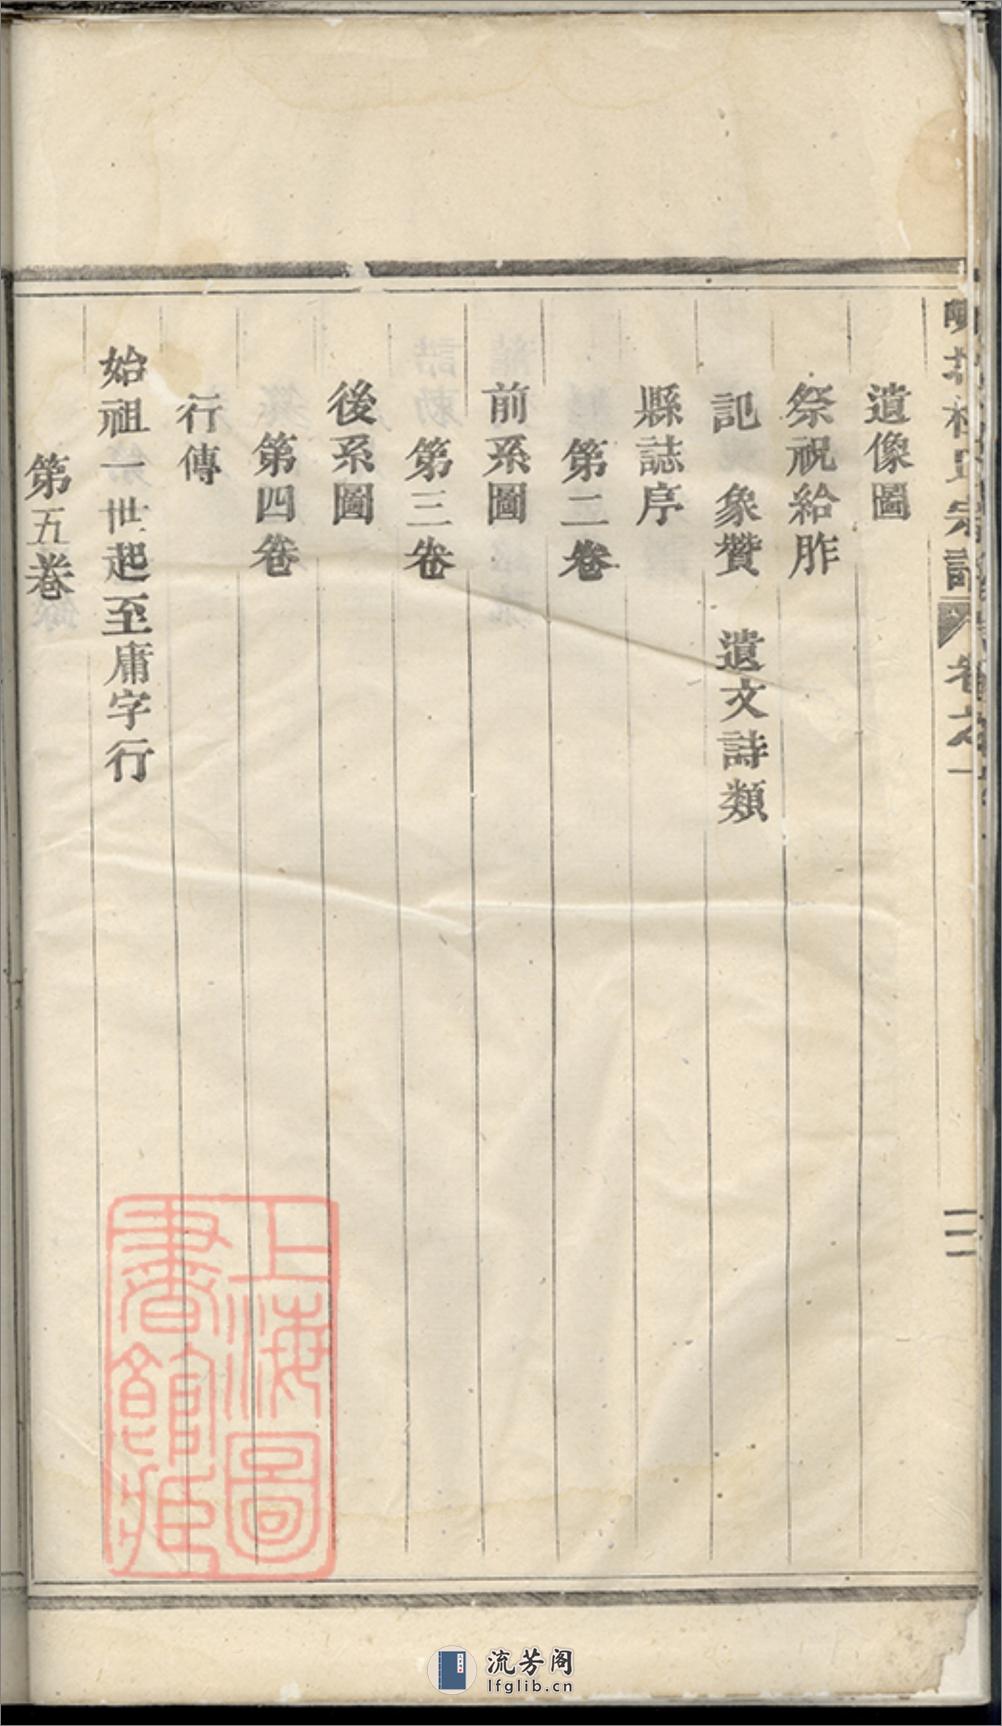 遺像圖
祭祝給胙
記 象贊 遺文詩類
縣誌序
第二卷
前系圖
第三卷
後系圖
第四卷
行傳
始祖一世起至庸字行
第五卷
宗譜 卷之一
二
上海圖書館藏
流芳阁
lfglib.cn